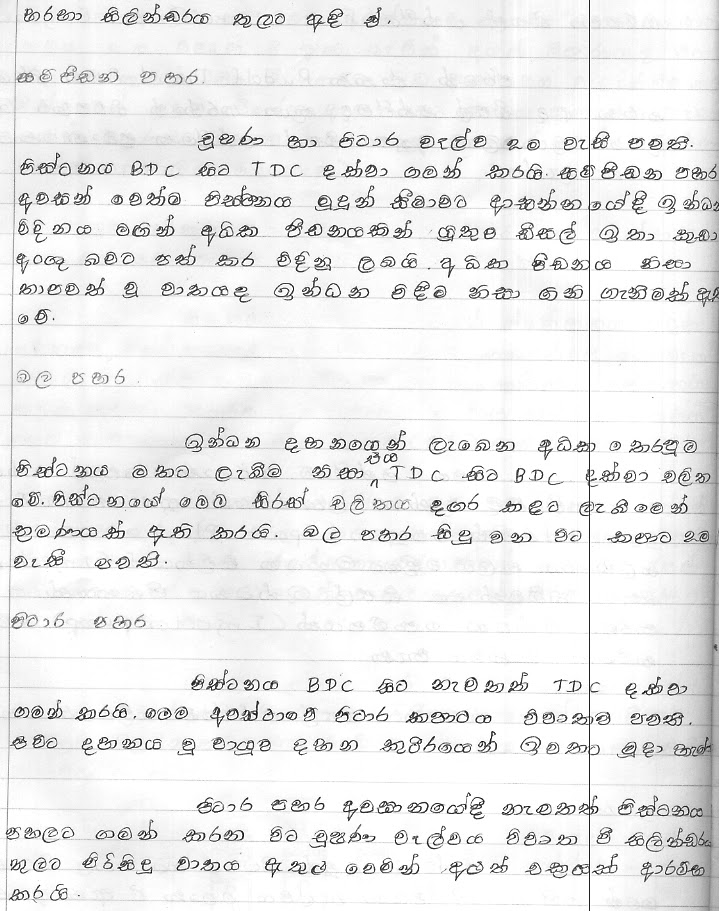 හරහා සිලින්ඩරය තුලට ඇදී ඒ.
සම්පීඩන පහර.
චුෂණ හා පිටාර වැල්ව 2ම වැසී පවතී.
පිස්ටනය BDC සිට TDC දක්වා ගමන් කරයි. සම්පීඩන පහර
අවසන් වෙත්ම පිස්ටනය මුදුන් සීමාවට ආසන්නයේදී ඉන්ධන
විදිනය මගින් අධික පීඩනයකින් යුතුව ඩීසල් ඉතා කුඩා
අංශු බවට පත් කර විදිනු ලබයි. අධික පීඩනය නිසා
තාපවත් වූ වාතයද ඉන්ධන විදීම නිසා ගිනි ගැනීමක් ඇති
වේ.
බල පහර.
ඉන්ධන දහනයෙන් ලැබෙන අධික තෙරපුම
පිස්ටනය මතට ලැබීම නිසා එය TDC සිට BDC දක්වා චලිත
වේ. පිස්ටනයේ මෙම සිරස් චලිතය දඟර කඳට ලැබීමෙන්
භ්‍රමණයක් ඇති කරයි. බල පහර සිදු වන විට කපාට 2ම
වැසී පවතී.
පිටාර පහර
පිස්ටනය BDC සිට නැවතත් TDC දක්වා
ගමන් කරයි. මෙම අවස්ථාවේ පිටාර කපාටය විවෘතව පවතී.
එවිට දහනය වූ වායුව දහන කුටීරයෙන් ඉවතට මුදා හැරේ
පිටාර පහර අවසානයේදී නැවතත් පිස්ටනය
පහළට ගමන් කරන විට චුෂණ වැල්වය විවෘත වී සිලින්ඩරය
තුලට පිරිසිදු වාතය ඇතුල් වෙමින් අලුත් චක්‍රයක් ආරම්භ
කරයි.